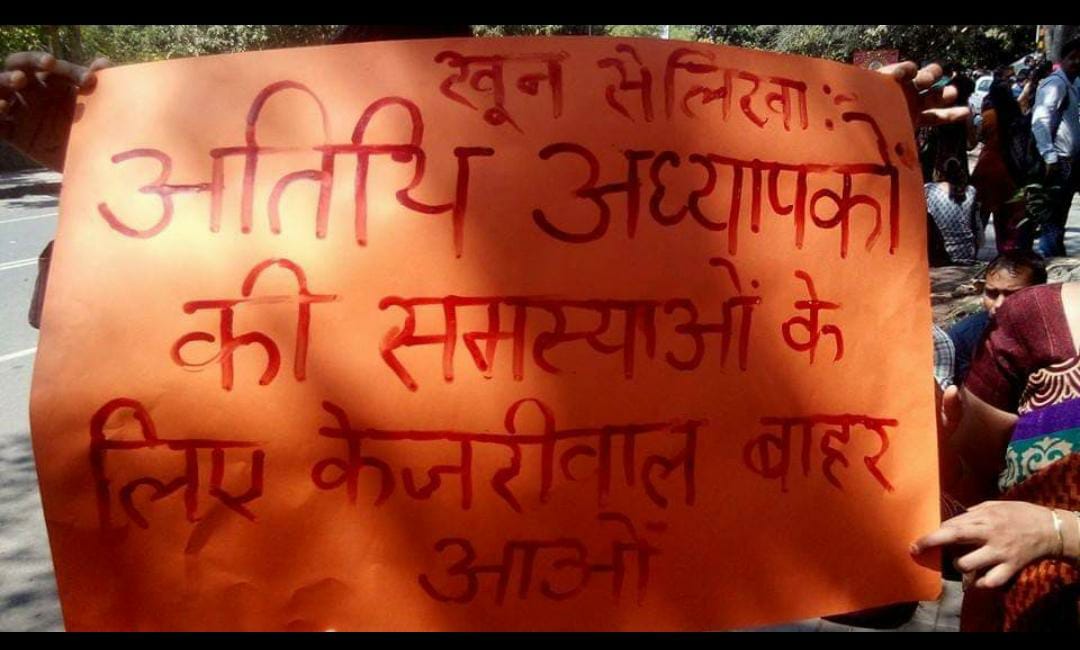 खून से लिखा :-
अतिथि अध्यापकों
की समस्याओं के
लिए केजरीवाल बाहर
आओं